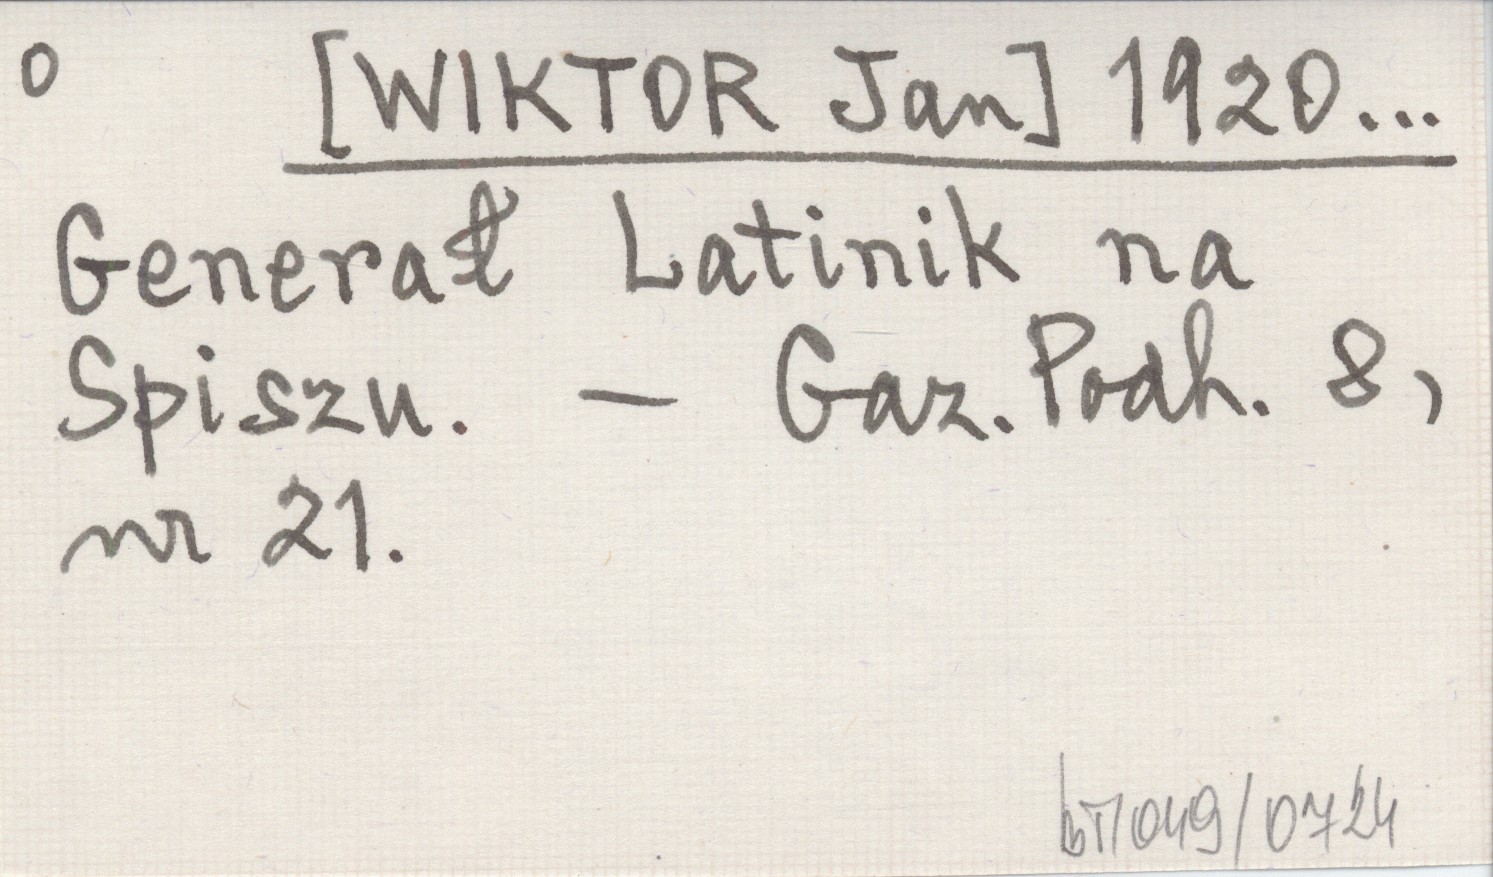 o [WIKTOR Jan] 1920...
Generał Latinik na
Spiszu. — Gaz. Podh. 8,
nr 21.
bT/049/0724